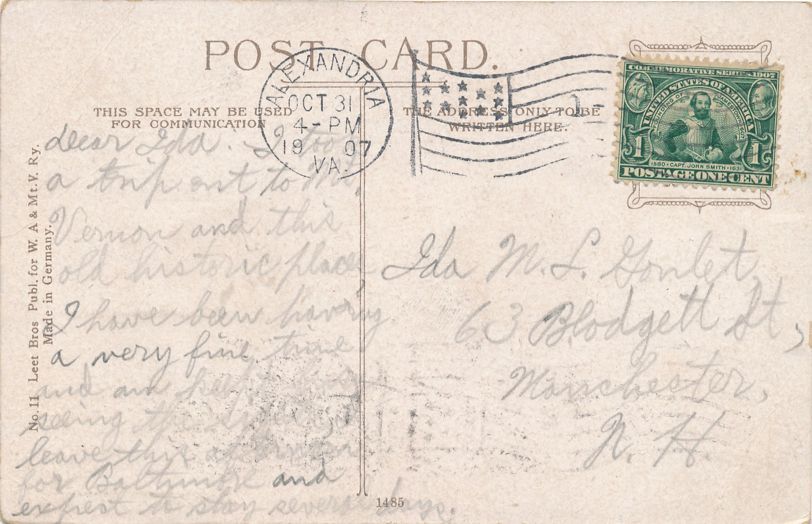 POST CARD.
ALEXANDRIA
OCT 31
4-PM
1907
VA.
COMMEMORATIVE SERIES 1907
UNITED STATES OF AMERICA
1 1
1580 • CAPT. JOHN SMITH • 1631
POSTAGE ONE CENT
THIS SPACE MAY BE USED
FOR COMMUNICATION
THE ADDRESS ONLY TO BE
WRITTEN HERE.
dear Ida. I took
a trip out to Mt.
Vernon and this
old historic place,
I have been having
a very fine time
and am
seeing the
leave this afternoon
for Baltimore and
expect to stay several days.
Ida M. L. Goulet,
63 Blodgett St,
Manchester,
N. H.
No. 11 Leet Bros Publ. for W. A & Mt. V. Ry.
Made in Germany.
1485